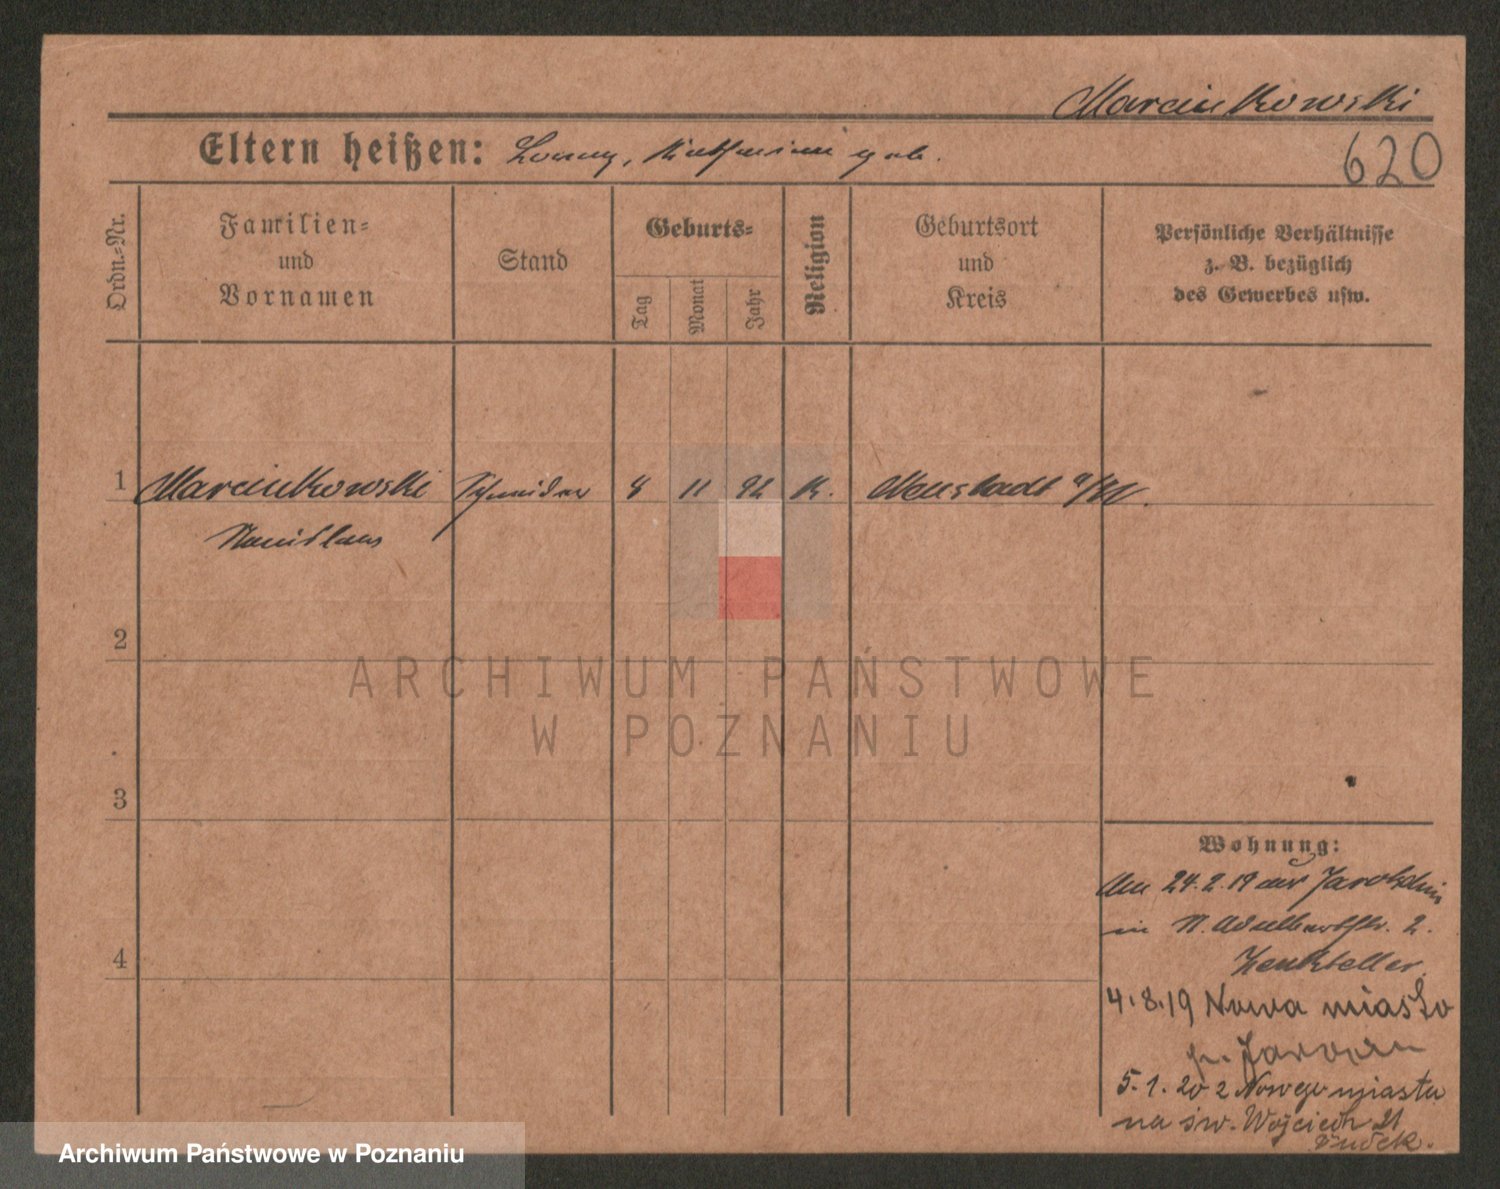 Marcinkowski
Eltern heißen: Katharina geb.
620
Ordn.=Nr.
Familien=
und
Vornamen
Stand
Geburts=
Tag
Monat
Jahr
Religion
Geburtsort
und
Kreis
Persönliche Verhältnisse
z. B. bezüglich
des Gewerbes usw.
1 Marcinkowski Schneider 11 92 K. Neustadt a/W.
Stanislaus
2
3
4
ARCHIWUM PAŃSTWOWE
W POZNANIU
Wohnung:
Am 24.2.19 aus Jarotschin
in N. Adalbertstr. 2.
4.8.19 Nowa miasto
p. Jarocin
5.1.20 z Nowego miasta
na św. Wojciech 21
Archiwum Państwowe w Poznaniu